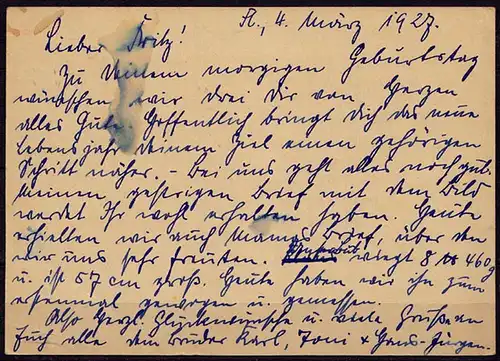 A., 4. März 1927.
Lieber Fritz!
Zu Deinem morgigen Geburtstag
wünschen wir drei Dir von Herzen
alles Gute. Hoffentlich bringt Dich das neue
Lebensjahr Deinem Ziel einen gehörigen
Schritt näher. – Bei uns geht alles noch gut.
Meinen gestrigen Brief mit dem Bild
werdet Ihr wohl erhalten haben. Heute
erhielten wir auch Mamas Brief, über den
wir uns sehr freuten. wiegt 8 460g
u. ist 57 cm groß. Heute haben wir ihn zum
erstenmal gewogen u. gemessen.
Also herzl. Glückwünsche u. viele Grüße an
Euch alle dem Bruder Karl, Toni & Hans-Jürgen.